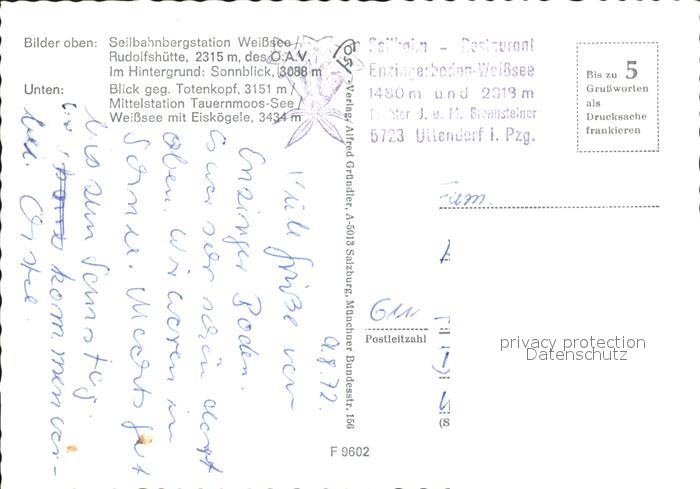 Bilder oben: Seilbahnbergstation Weißsee /
Rudolfshütte, 2315 m, des Ö.A.V.
Im Hintergrund: Sonnblick, 3088 m
Unten: Blick geg. Totenkopf, 3151 m /
Mittelstation Tauernmoos-See /
Weißsee mit Eiskögele, 3434 m
Seilbahn - Restaurant
Enzingerboden-Weißsee
1480 m und 2318 m
J. u. M. Bronnsteiner
5723 Uttendorf i. Pzg.
Bis zu 5
Grußworten
als
Drucksache
frankieren
Verlag Alfred Gründler, A-5013 Salzburg, Münchner Bundesstr. 156
9.8.72.
Viele Grüße von
Enzinger Boden.
Es war sehr schön dort
oben. Wir waren in
Sonne.
bis zum Samstag
wir kommen
Fam.
Postleitzahl
(S
F 9602
privacy protection
Datenschutz